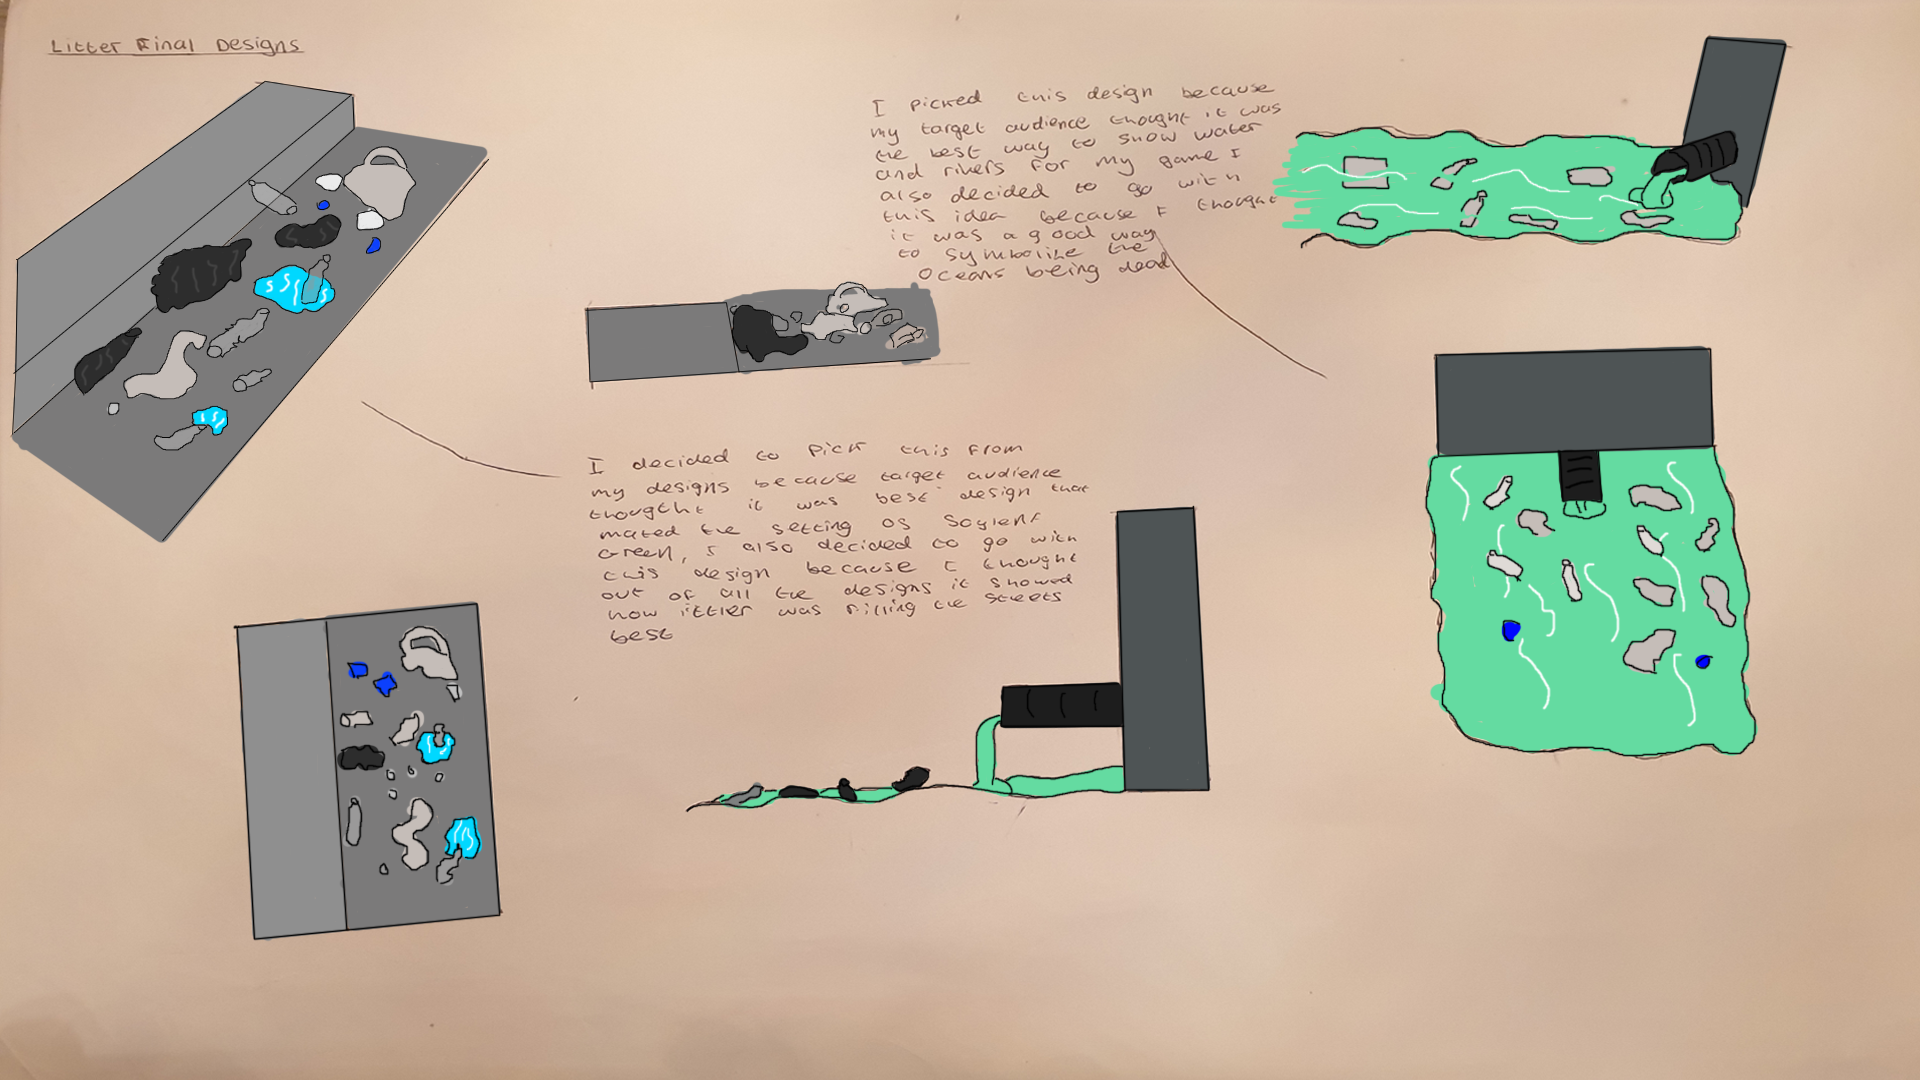 Litter Final Designs
I picked this design because
my target audience thought it was
the best way to show water
and rivers for my game I
also decided to go with
this idea because I thought
it was a good way
to symbolize the
Oceans being dead
I decided to pick this from
my designs because target audience
thougtht it was best design that
mated the setting of Soylent
Green, I also decided to go with
this design because I thought
out of all the designs it showed
how littler was filling the steets
best